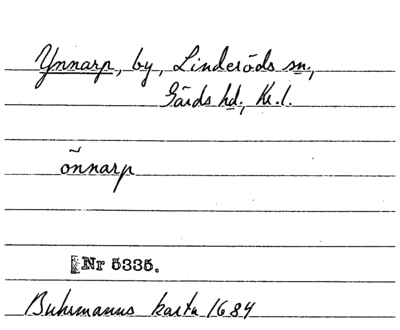 Ynnarp, by, Linderöds sn.,
Gärds hd, Kr.l.
õnnarp
Nr 5335.
Buhrmanns karta 1684